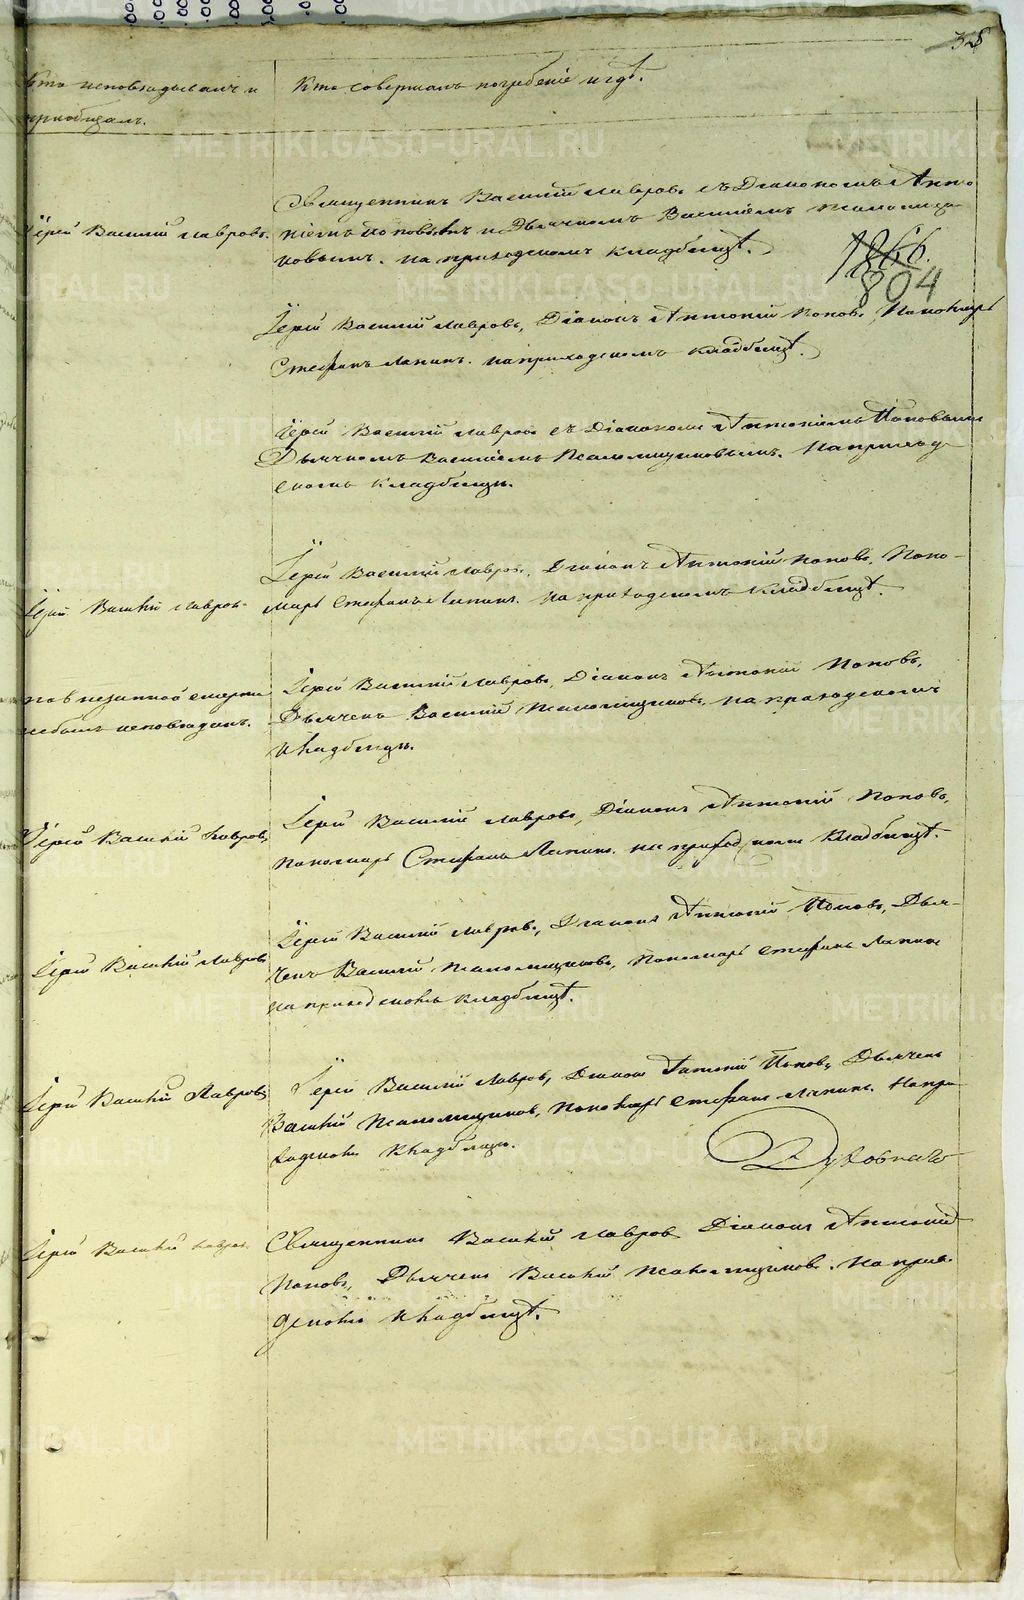 328
Кто исповѣдывалъ и
приобщалъ.
Кто совершалъ погребеніе и гдѣ.
Іерей Василій Лавровъ.
Священникъ Василій Лавровъ съ Діакономъ Анто-
ніемъ Поповымъ и Дьячкомъ Василіемъ Псаломщи-
ковымъ. на приходскомъ кладбищѣ.
1866.
804
Іерей Василій Лавровъ, Діаконъ Антоній Поповъ, Пономарь
Стефанъ Лапинъ. на приходскомъ кладбищѣ.
Іерей Василій Лавровъ съ Діакономъ Антоніемъ Поповымъ
Дьячкомъ Василіемъ Псаломщиковымъ. На приход-
скомъ кладбищѣ.
Іерей Василій Лавровъ.
Іерей Василій Лавровъ, Діаконъ Антоній Поповъ, Поно-
марь Стефанъ Лапинъ. на приходскомъ кладбищѣ.
по внезапной смерти
не былъ исповѣданъ.
Іерей Василій Лавровъ, Діаконъ Антоній Поповъ,
Дьячекъ Василій Псаломщиковъ. на приходскомъ
кладбищѣ.
Іерей Василій Лавровъ,
Іерей Василій Лавровъ, Діаконъ Антоній Поповъ,
пономарь Стефанъ Лапинъ. на приходскомъ кладбищѣ.
Іерей Василій Лавровъ
Іерей Василій Лавровъ, Діаконъ Антоній Поповъ, Дья-
чекъ Василій Псаломщиковъ, пономарь Стефанъ Лапинъ
на приходскомъ кладбищѣ.
Іерей Василій Лавровъ
Іерей Василій Лавровъ, Діаконъ Антоній Поповъ, Дьячекъ
Василій Псаломщиковъ, пономарь Стефанъ Лапинъ. На при-
ходскомъ кладбищѣ.
Духовнаго
Іерей Василій Лавровъ
Священникъ Василій Лавровъ Діаконъ Антоній
Поповъ, Дьячекъ Василій Псаломщиковъ. На прихо-
дскомъ кладбищѣ.
METRIKI.GASO-URAL.RU